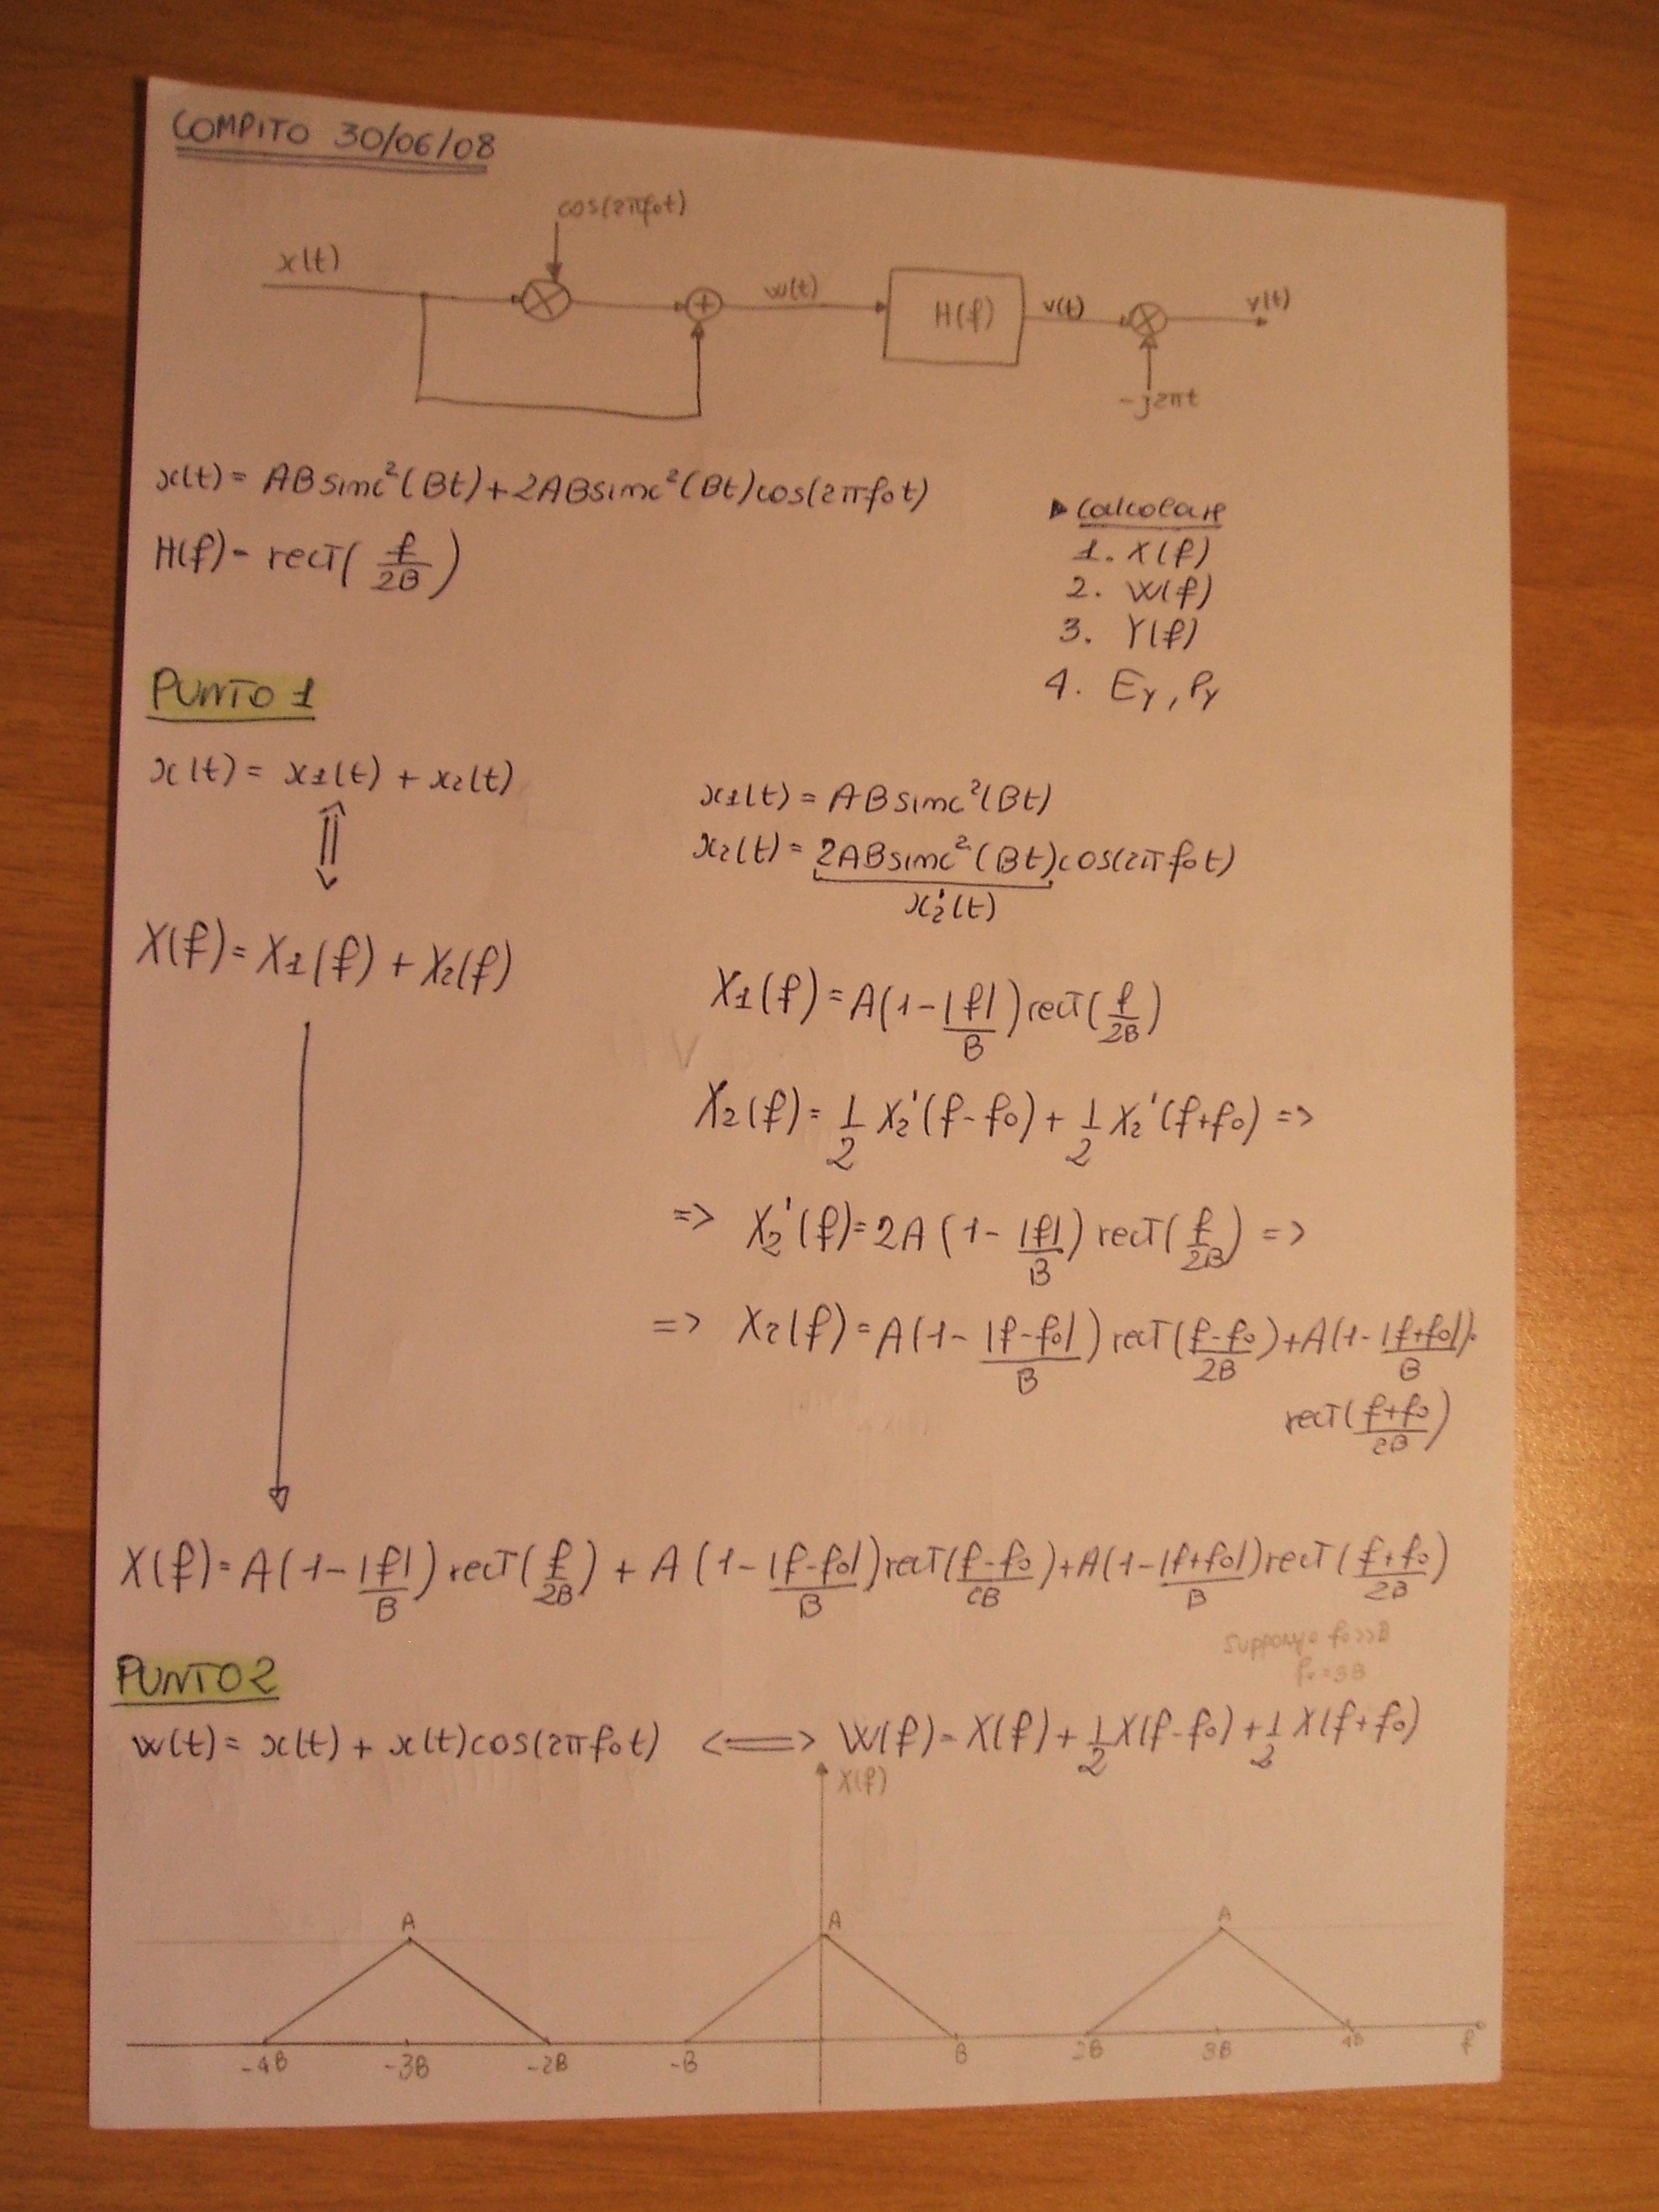 COMPITO 30/06/08
cos(2πf₀t)
x(t)
w(t)
H(f)
v(t)
y(t)
-j2πt
x(t) = ABsinc²(Bt)+2ABsinc²(Bt)cos(2πf₀t)
H(f) = rect(f/2B)
▶ Calcolare
1. X(f)
2. W(f)
3. Y(f)
4. Ey, Py
PUNTO 1
x(t) = x₁(t) + x₂(t)
x₁(t) = ABsinc²(Bt)
x₂(t) = 2ABsinc²(Bt)cos(2πf₀t)
x₂'(t)
X(f) = X₁(f) + X₂(f)
X₁(f) = A(1-|f|/B)rect(f/2B)
X₂(f) = 1/2 X₂'(f-f₀) + 1/2 X₂'(f+f₀) =>
=> X₂'(f) = 2A(1-|f|/B) rect(f/2B) =>
=> X₂(f) = A(1-|f-f₀|/B) rect(f-f₀/2B)+A(1-|f+f₀|/B)·
rect(f+f₀/2B)
X(f) = A(1-|f|/B) rect(f/2B) + A(1-|f-f₀|/B)rect(f-f₀/2B)+A(1-|f+f₀|/B)rect(f+f₀/2B)
Suppongo f₀>>B
f₀=3B
PUNTO 2
w(t) = x(t) + x(t)cos(2πf₀t) <=> W(f) = X(f) + 1/2 X(f-f₀) + 1/2 X(f+f₀)
X(f)
A A A
-4B -3B -2B -B B 2B 3B 4B f